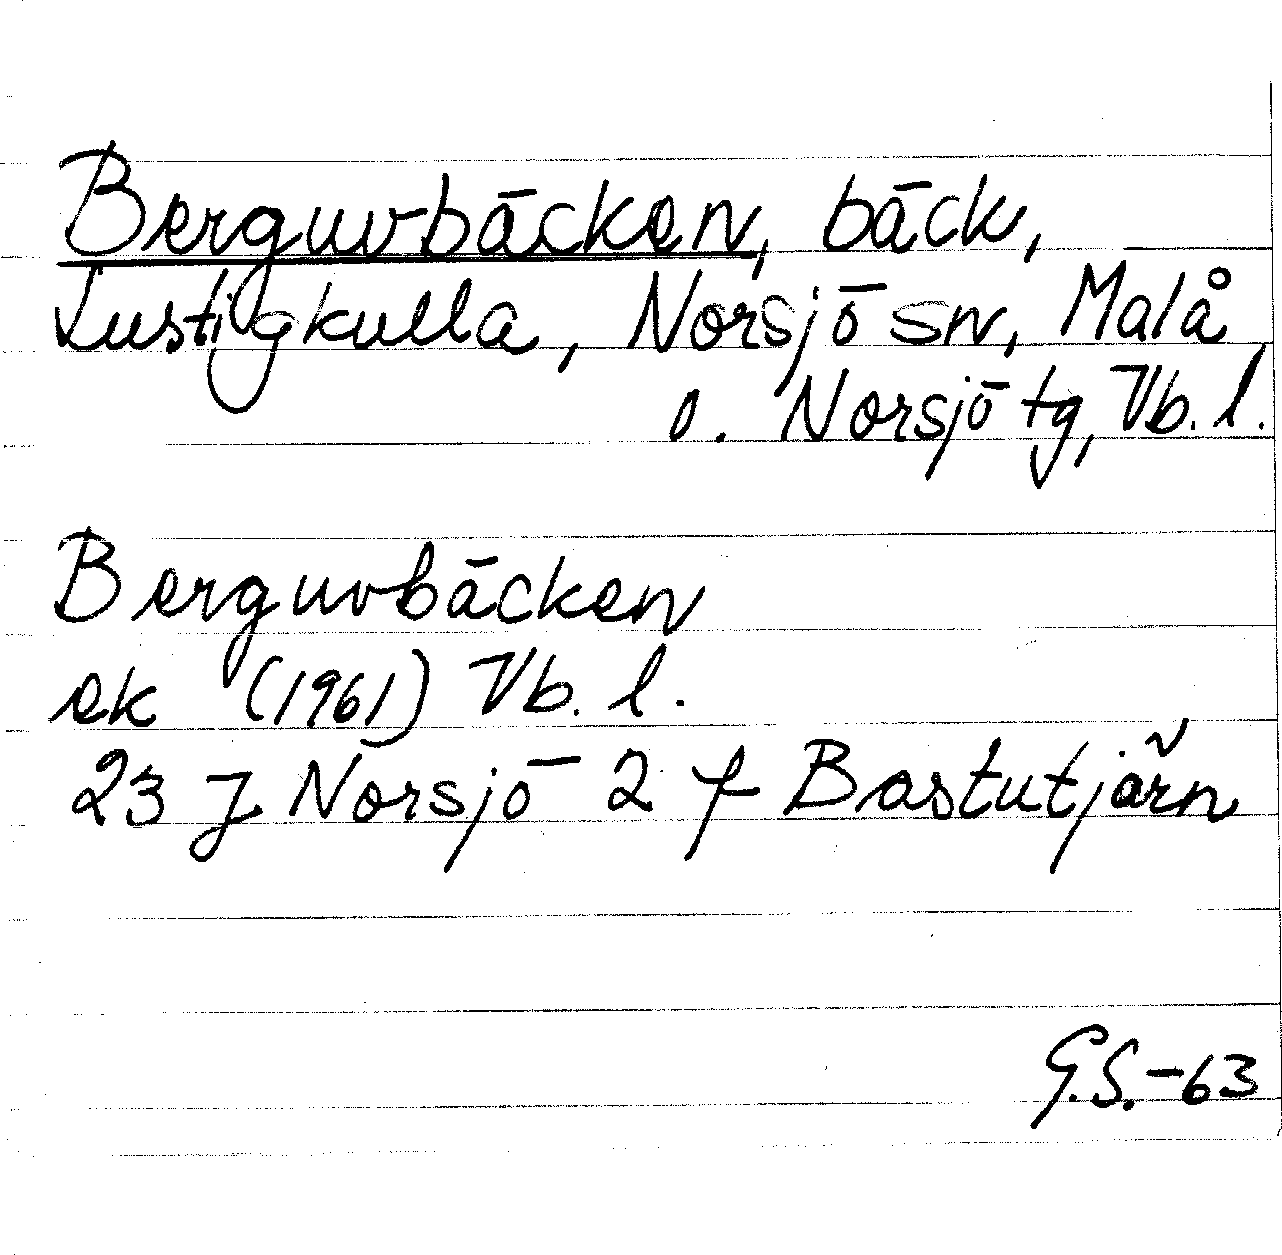 Berguvbäcken, bäck,
Lustigkulla, Norsjö sn, Malå
o. Norsjö tg, Vb. l.
Berguvbäcken
ek (1961) Vb. l.
23 J Norsjö 2 f Bastutjärn
G.S.-63